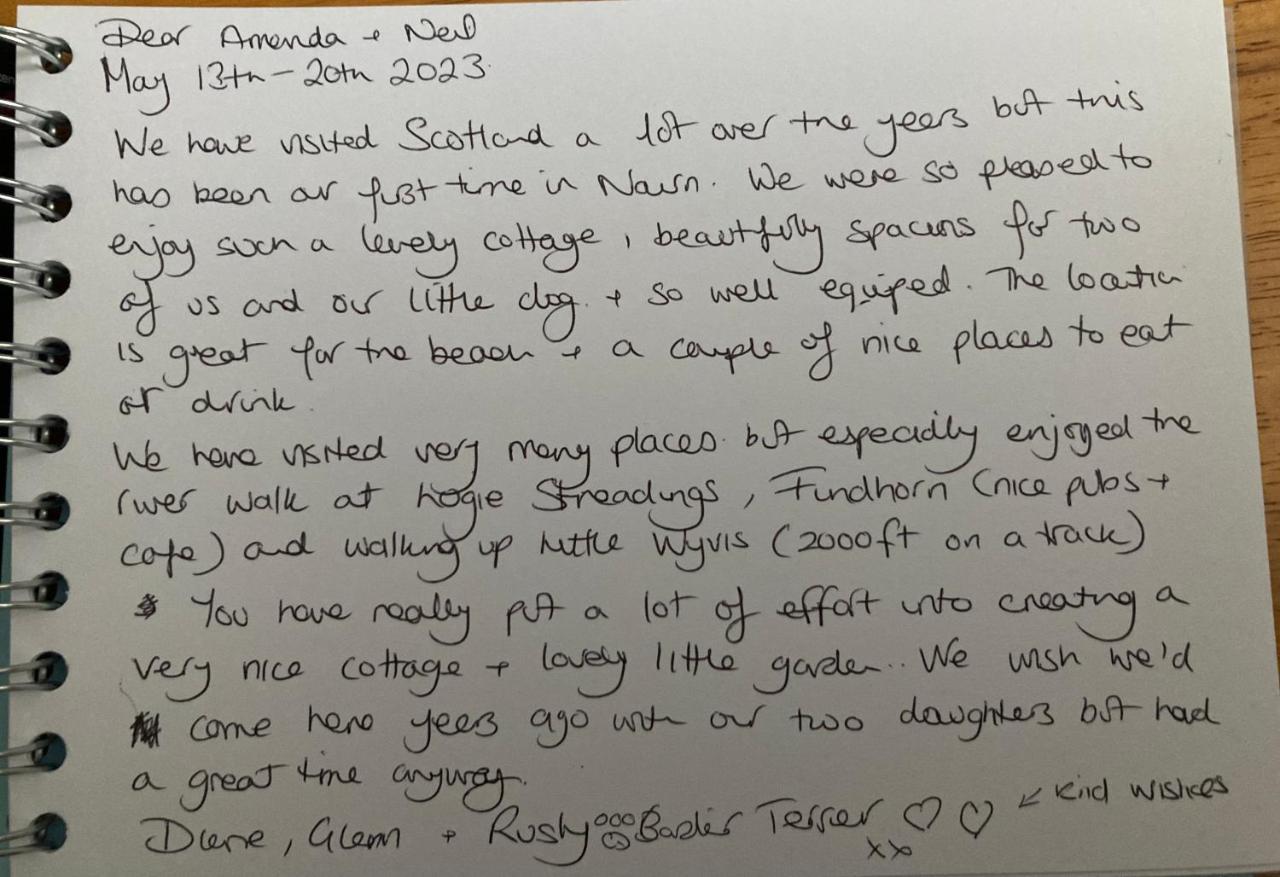 Dear Amanda + Neil
May 13th - 20th 2023.
We have visited Scotland a lot over the years but this
has been our first time in Nairn. We were so pleased to
enjoy such a lovely cottage, beautifully spacious for two
of us and our little dog. + so well equiped. The location
is great for the beach + a couple of nice places to eat
or drink.
We have visited very many places but especially enjoyed the
river walk at Logie Steadings, Findhorn (nice pubs +
cafe) and walking up little Wyvis (2000ft on a track)
You have really put a lot of effort into creating a
very nice cottage + lovely little garden.. We wish we'd
come here years ago with our two daughters but had
a great time anyway.
Diane, Glenn + Rusty Border Terrier ♡ ♡ ↙ Kind wishes
xx